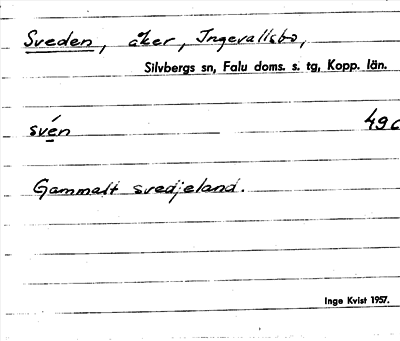 Sveden, åker, Ingevallsbo,
Silvbergs sn, Falu doms. s. tg, Kopp. län.
svén 49c
Gammalt svedjeland.
Inge Kvist 1957.